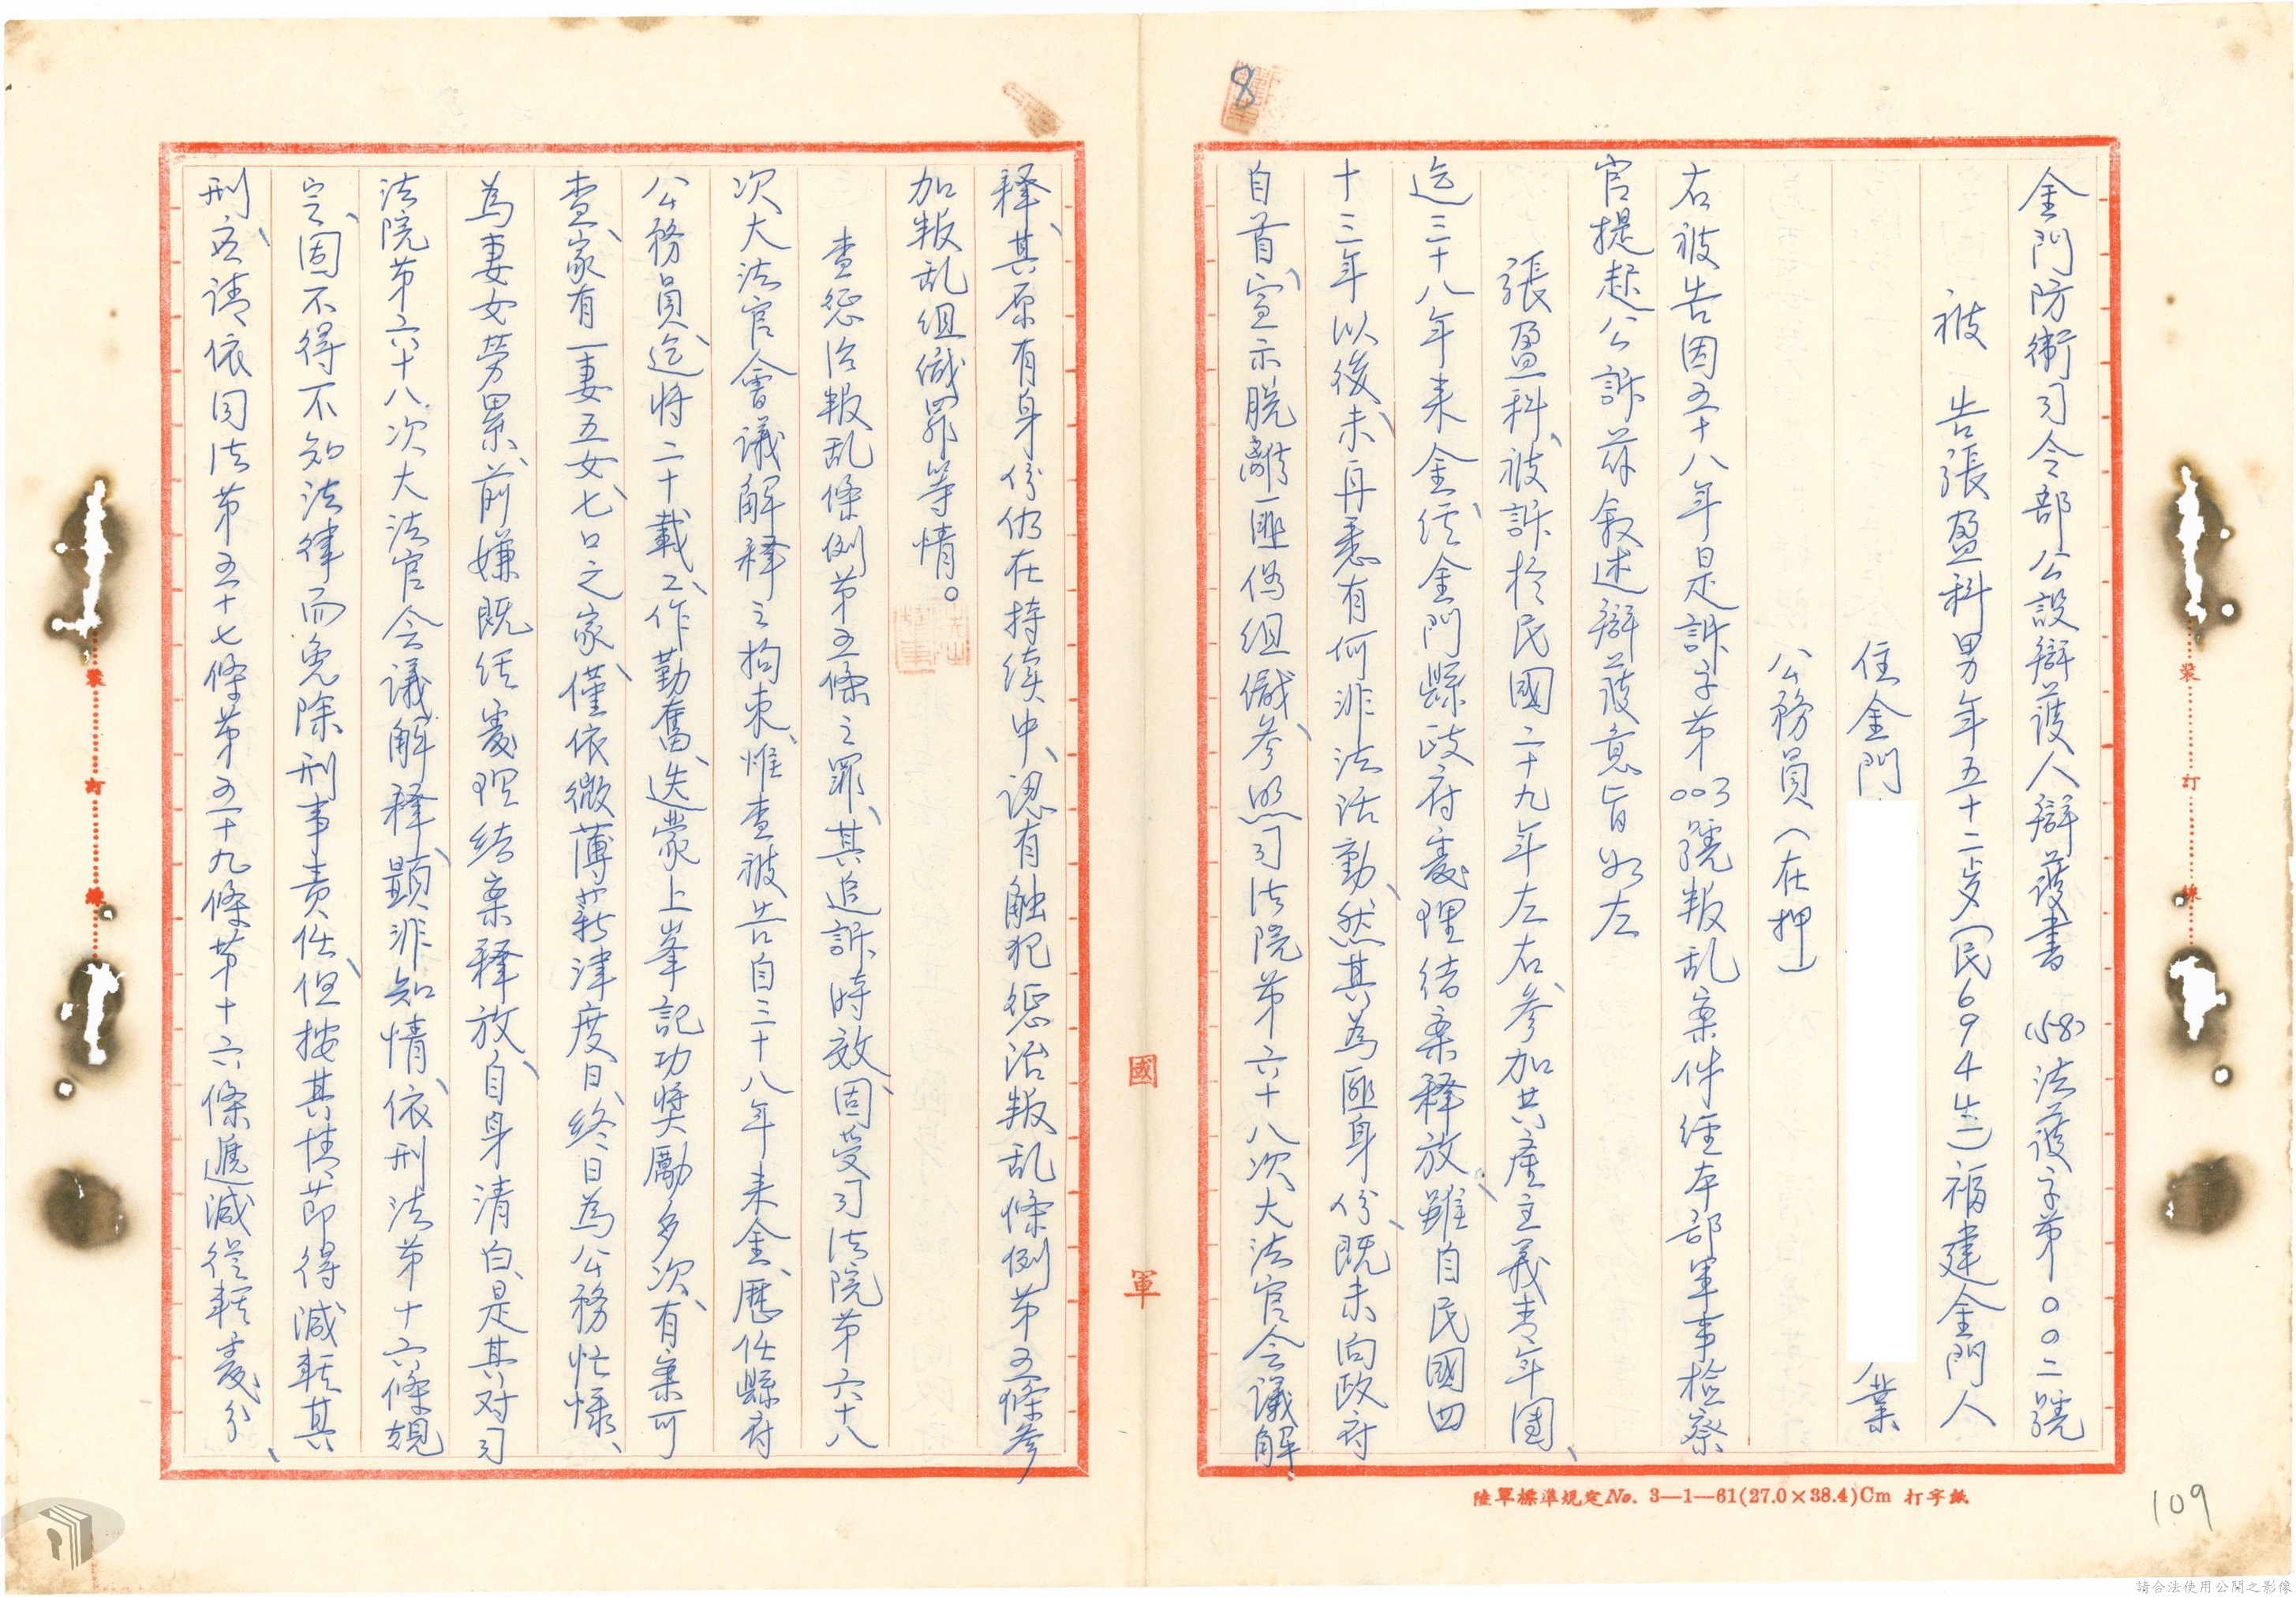 8
金門防衛司令部公設辯護人辯護書 (58)法護字第〇〇二號
被 告張盈科男年五十二歲(民694生)福建金門人
住金門
業
公務員(在押)
右被告因五十八年度訴字第003號叛乱案件經本部軍事檢察
官提起公訴茲叙述辯護意旨如左
張盈科、被訴於民國二十九年左右、參加共產主義青年團、
迄三十八年来金、經金門縣政府處理结案釋放、雖自民國四
十三年以後、未再悉有何非法活動、然其為匪身份、既未向政府
自首、宣示脫離匪偽組織、參照司法院第六十八次大法官会議解
釋、其原有身份仍在持续中、認有触犯惩治叛乱條例第五條參
加叛乱組織罪等情。
查惩治叛乱條例第五條之罪、其追訴時效、固受司法院第六十八
次大法官會議解釋之拘束、惟查被告自三十八年来金、歷任縣府
公務員、迄將二十載、工作勤奮、迭蒙上峯記功奬勵多次、有案可
查、家有一妻五女、七口之家、僅依微薄薪津度日、終日為公務忙㥛、
為妻女劳累、前嫌既经處理结案釋放、自身清白、是其对司
法院第六十八次大法官会議解釋、顯非知情、依刑法第十六條規
定、固不得不知法律而免除刑事責任、但按其情節得減軽其
刑、应請依同法第五十七條第五十九條第十六條遞減從軽處分、
國
軍
裝
訂
線
裝
訂
線
陸軍標準規定No. 3—1—61(27.0×38.4)Cm 打字紙
109
請合法使用公開之影像